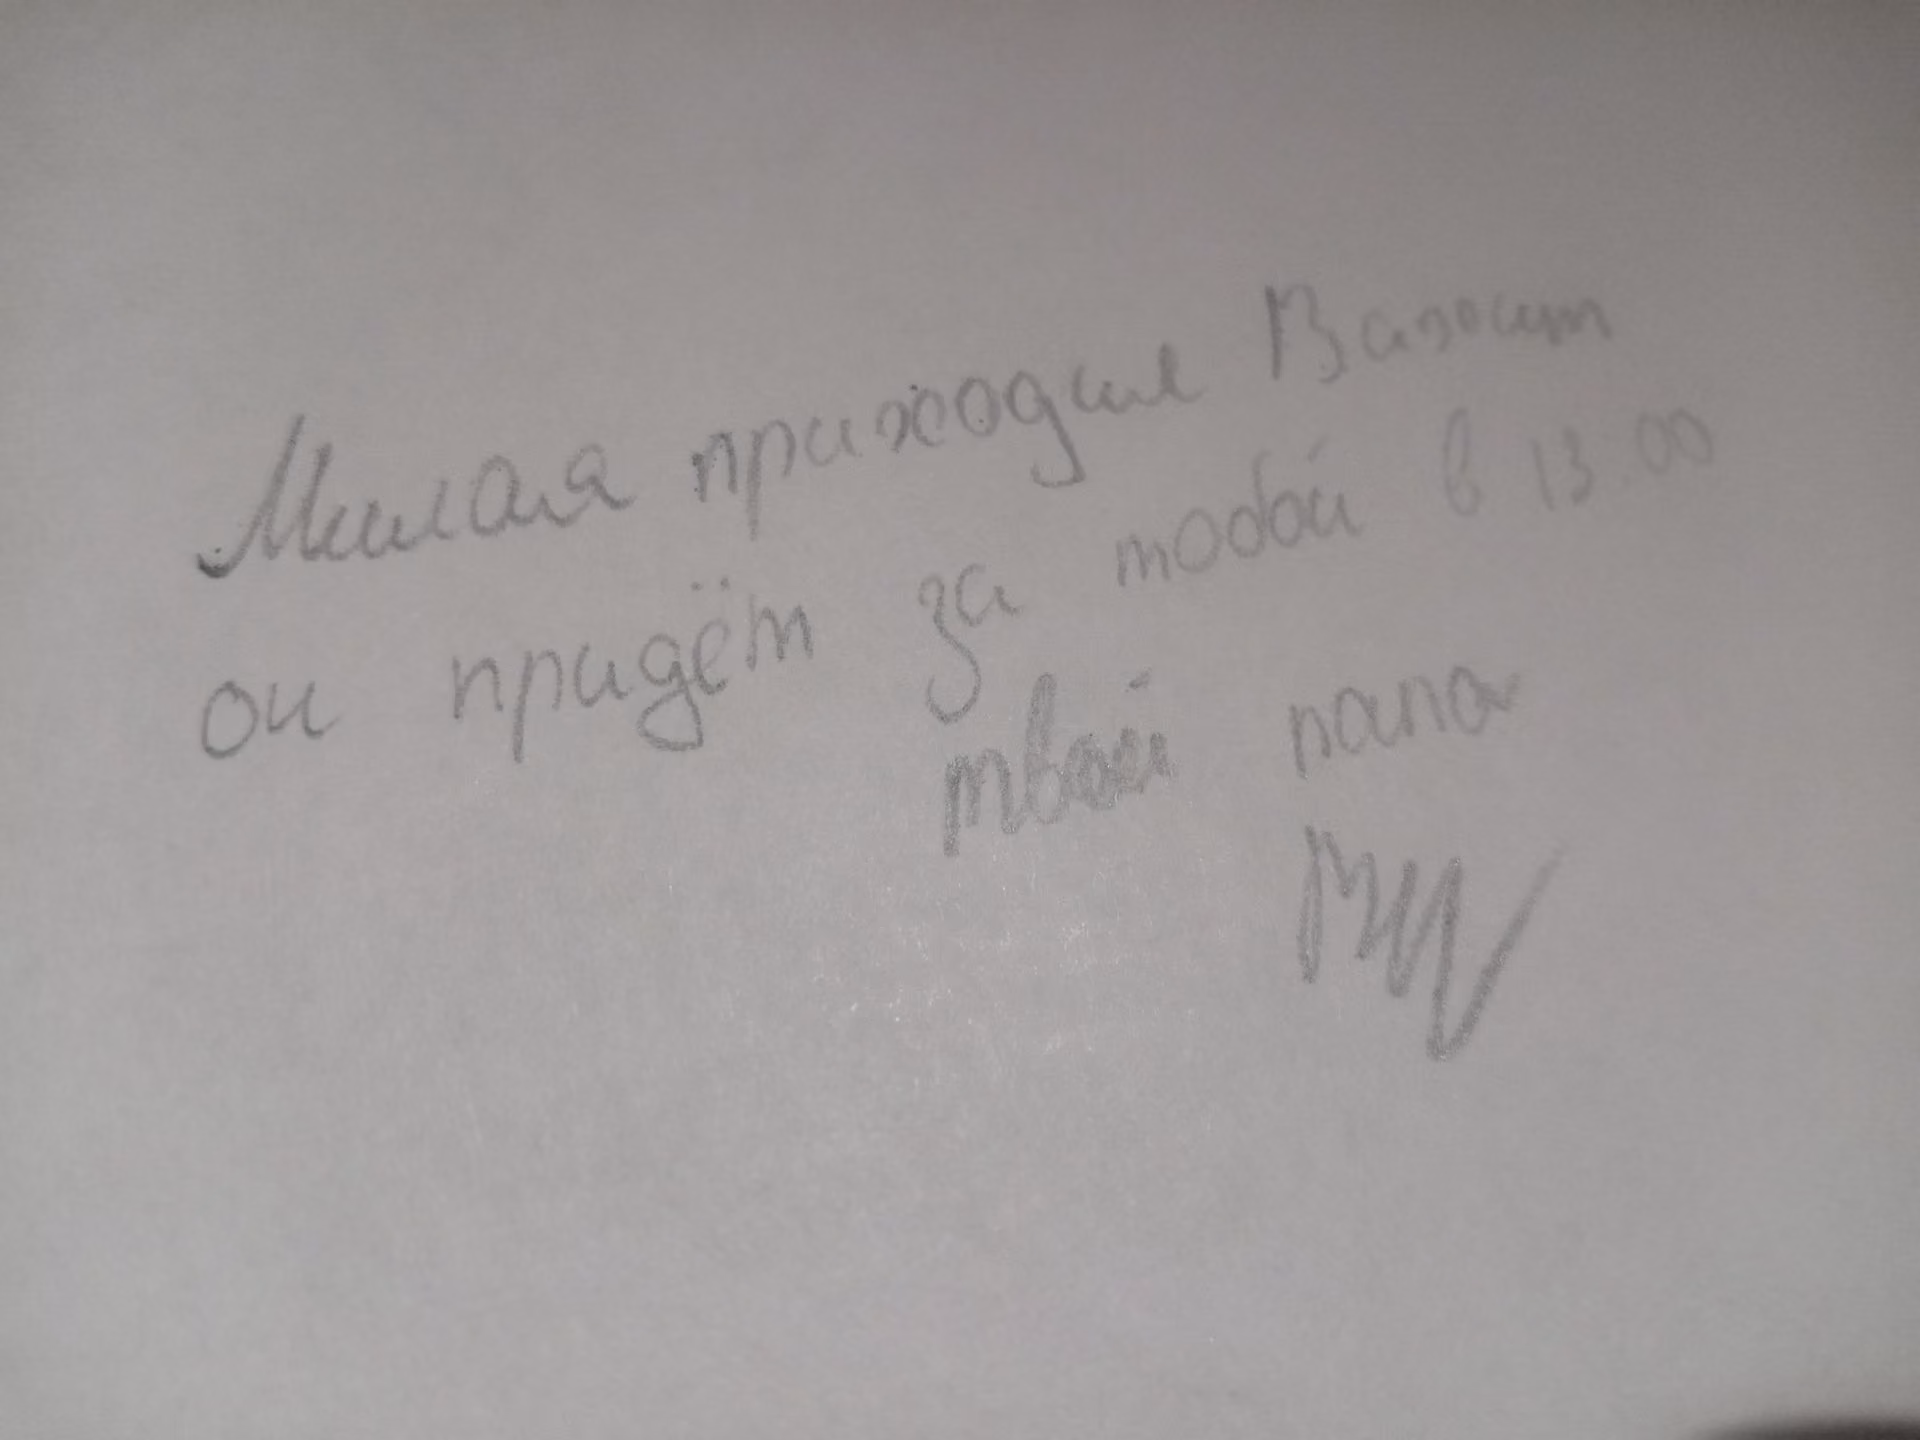 Милая приходил
он придёт за тобой в 13.00
твой папа